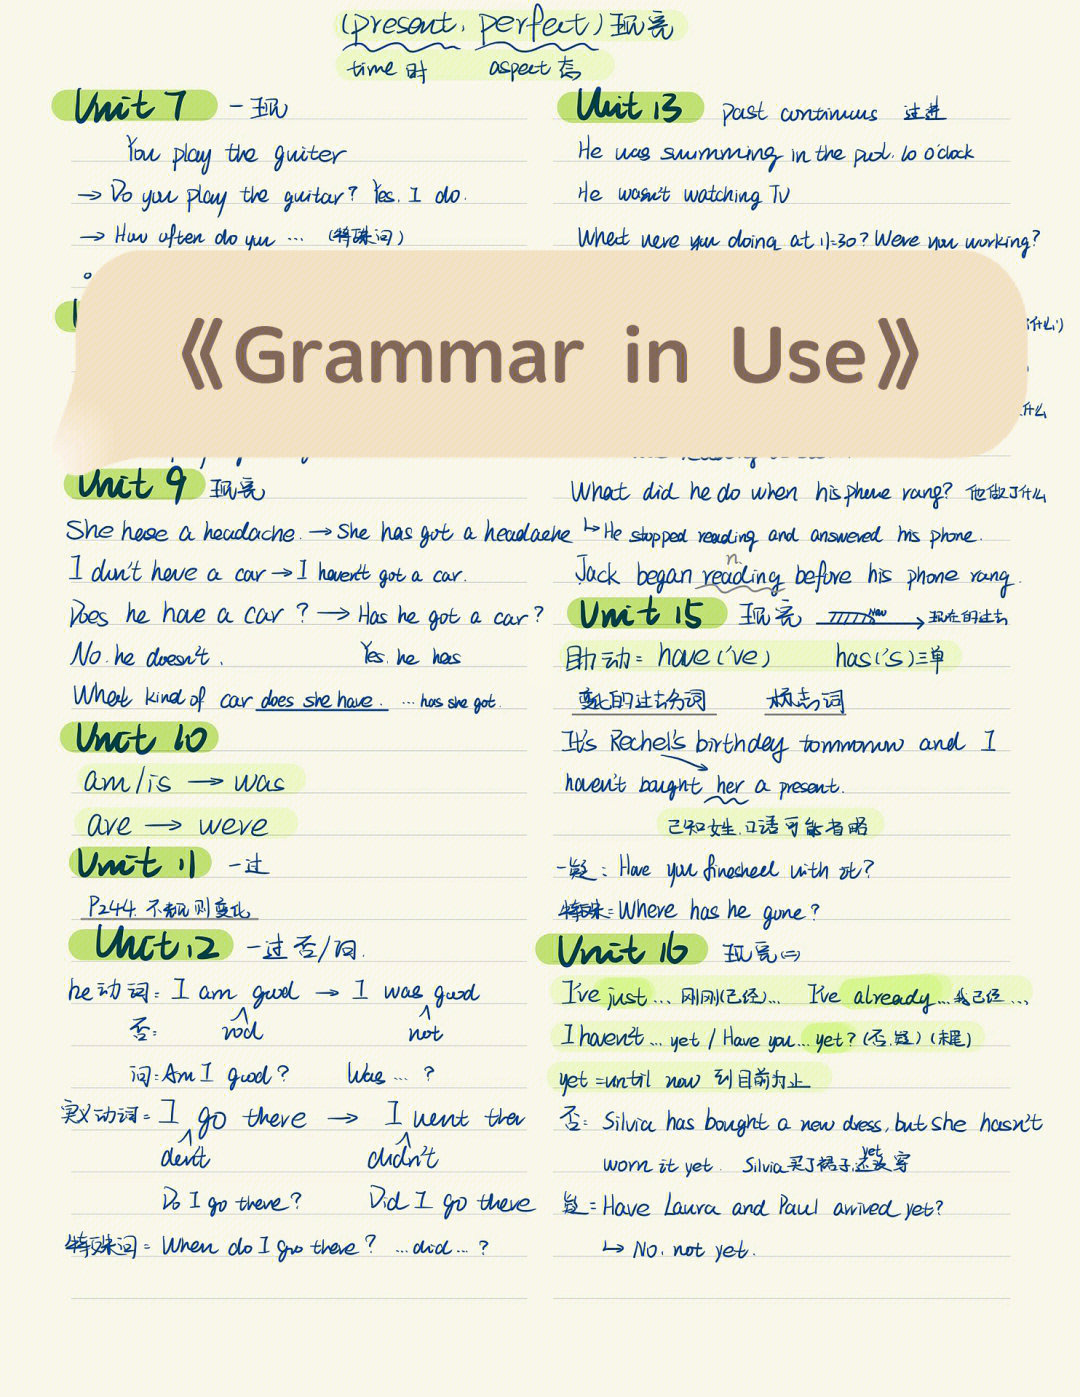 (present, perfect) 现完
time 时 aspect 态
Unit 7 一现
You play the guiter
→ Do you play the guitar? Yes. I do.
→ How often do you ... (特殊问)
《Grammar in Use》
Unit 9 现完
She have a headache. → She has got a headache
I don't have a car → I haven't got a car.
Does he have a car? → Has he got a car?
No. he doesn't. Yes. he has
What kind of car does she have. ... has she got.
Unit 10
am/is → was
are → were
Unit 11 一过
P244. 不规则变化
Unit 12 一过 否/问.
be动词: I am good → I was good
否: not not
问: Am I good? Was ... ?
实义动词: I go there → I went ther
don't didn't
Do I go there? Did I go there
特殊问: When do I go there? ... did ... ?
Unit 13 past continuus 过进
He was swimming in the pool. 10 o'clock
He wasn't watching TV
What were you doing at 11:30? Were you working?
什么)
什么
What did he do when his phone rang? 他做了什么
↳ He stopped reading and answered his phone.
n.
Jack began reading before his phone rang.
Unit 15 现完 now 现在的过去
助动: have('ve) has('s)三单
变化的过去分词 标志词
It's Rechel's birthday tommorow and I
haven't bought her a present.
已知女生,口语可能省略
一疑: Have you finished with it?
特殊: Where has he gone?
Unit 16 现完(二)
I've just ... 刚刚(已经)... I've already ... 我已经 ...
I haven't ... yet / Have you ... yet? (否.疑) (末尾)
yet = until now 到目前为止
否: Silvia has bought a new dress, but she hasn't
worn it yet. Silvia买了裙子,还没穿
yet
疑: Have Laura and Paul arrived yet?
↳ No, not yet.